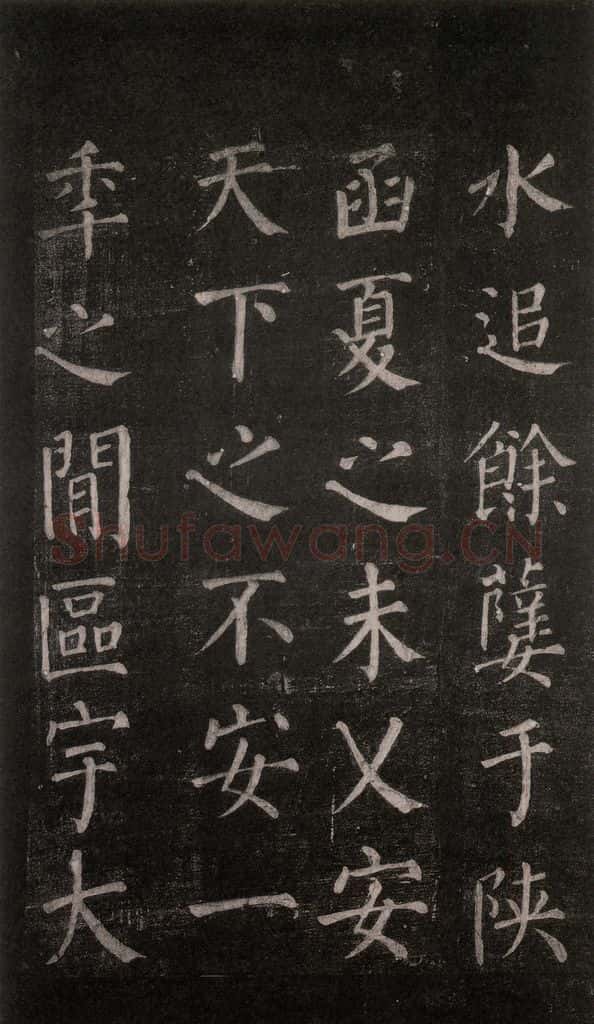 水追餘㜸于陝
函夏之未乂安
天下之不安一
秊之閒區宇大
Shufawang.CN